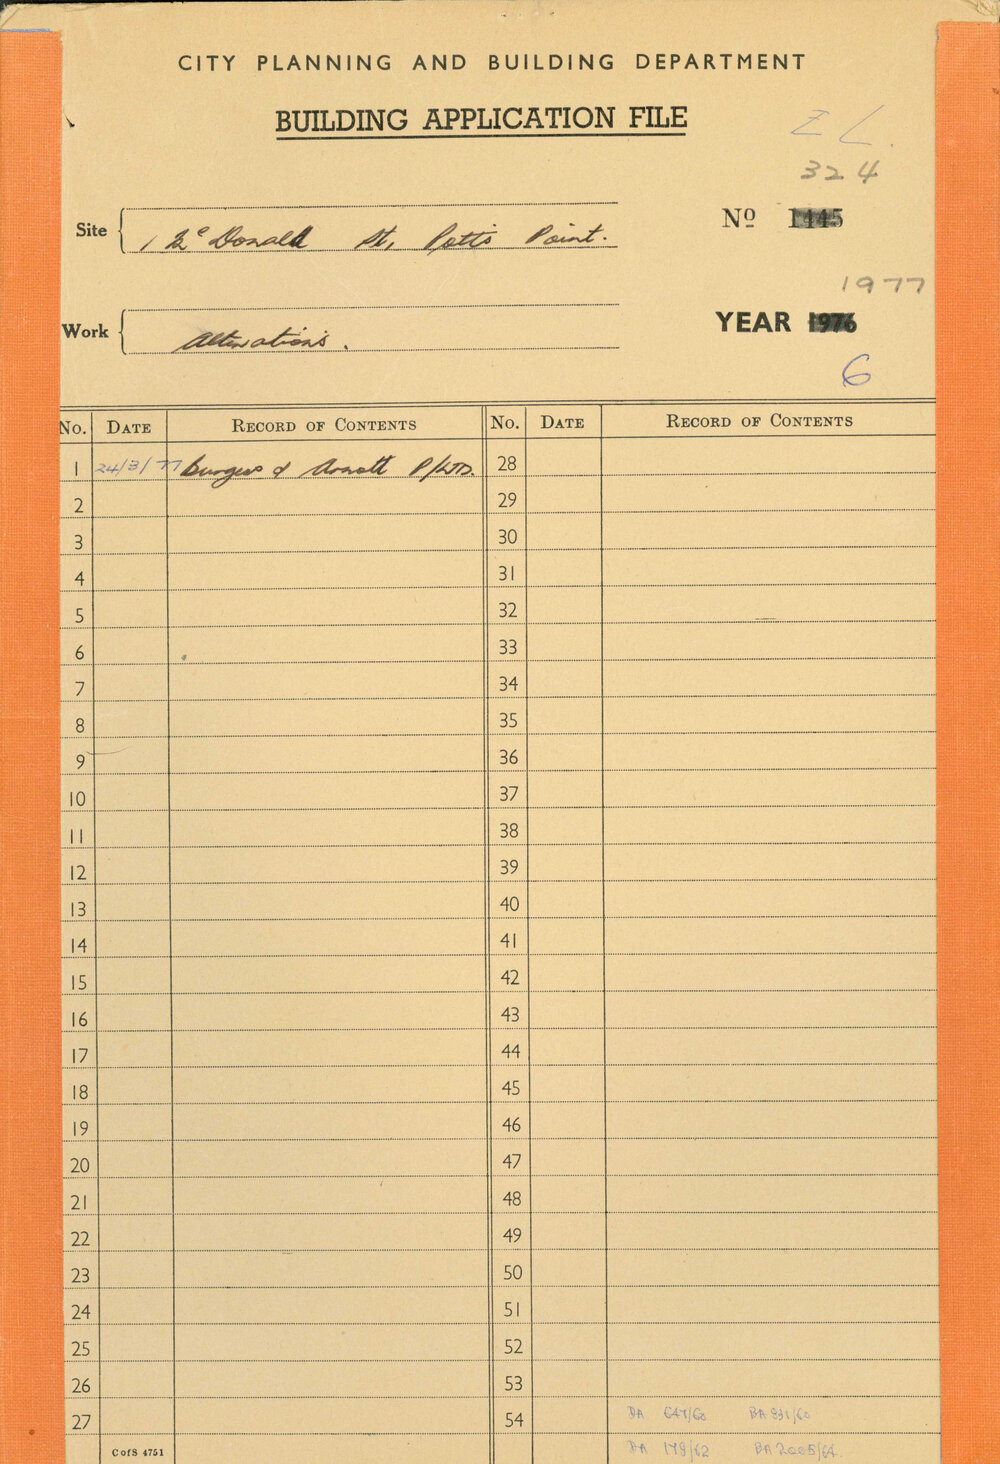 CITY PLANNING AND BUILDING DEPARTMENT
BUILDING APPLICATION FILE
Z L.
324
Site 1 McDonald St, Potts Point.
Nº 1445
1977
Work Alterations.
YEAR 1976
6
No. DATE RECORD OF CONTENTS No. DATE RECORD OF CONTENTS
1 24/3/77 Burgess & Arnott P/LTD. 28
2 29
3 30
4 31
5 32
6 33
7 34
8 35
9 36
10 37
11 38
12 39
13 40
14 41
15 42
16 43
17 44
18 45
19 46
20 47
21 48
22 49
23 50
24 51
25 52
26 53
27 54 DA 647/60 BA 931/60
C of S 4751 DA 179/62 BA 2005/64.